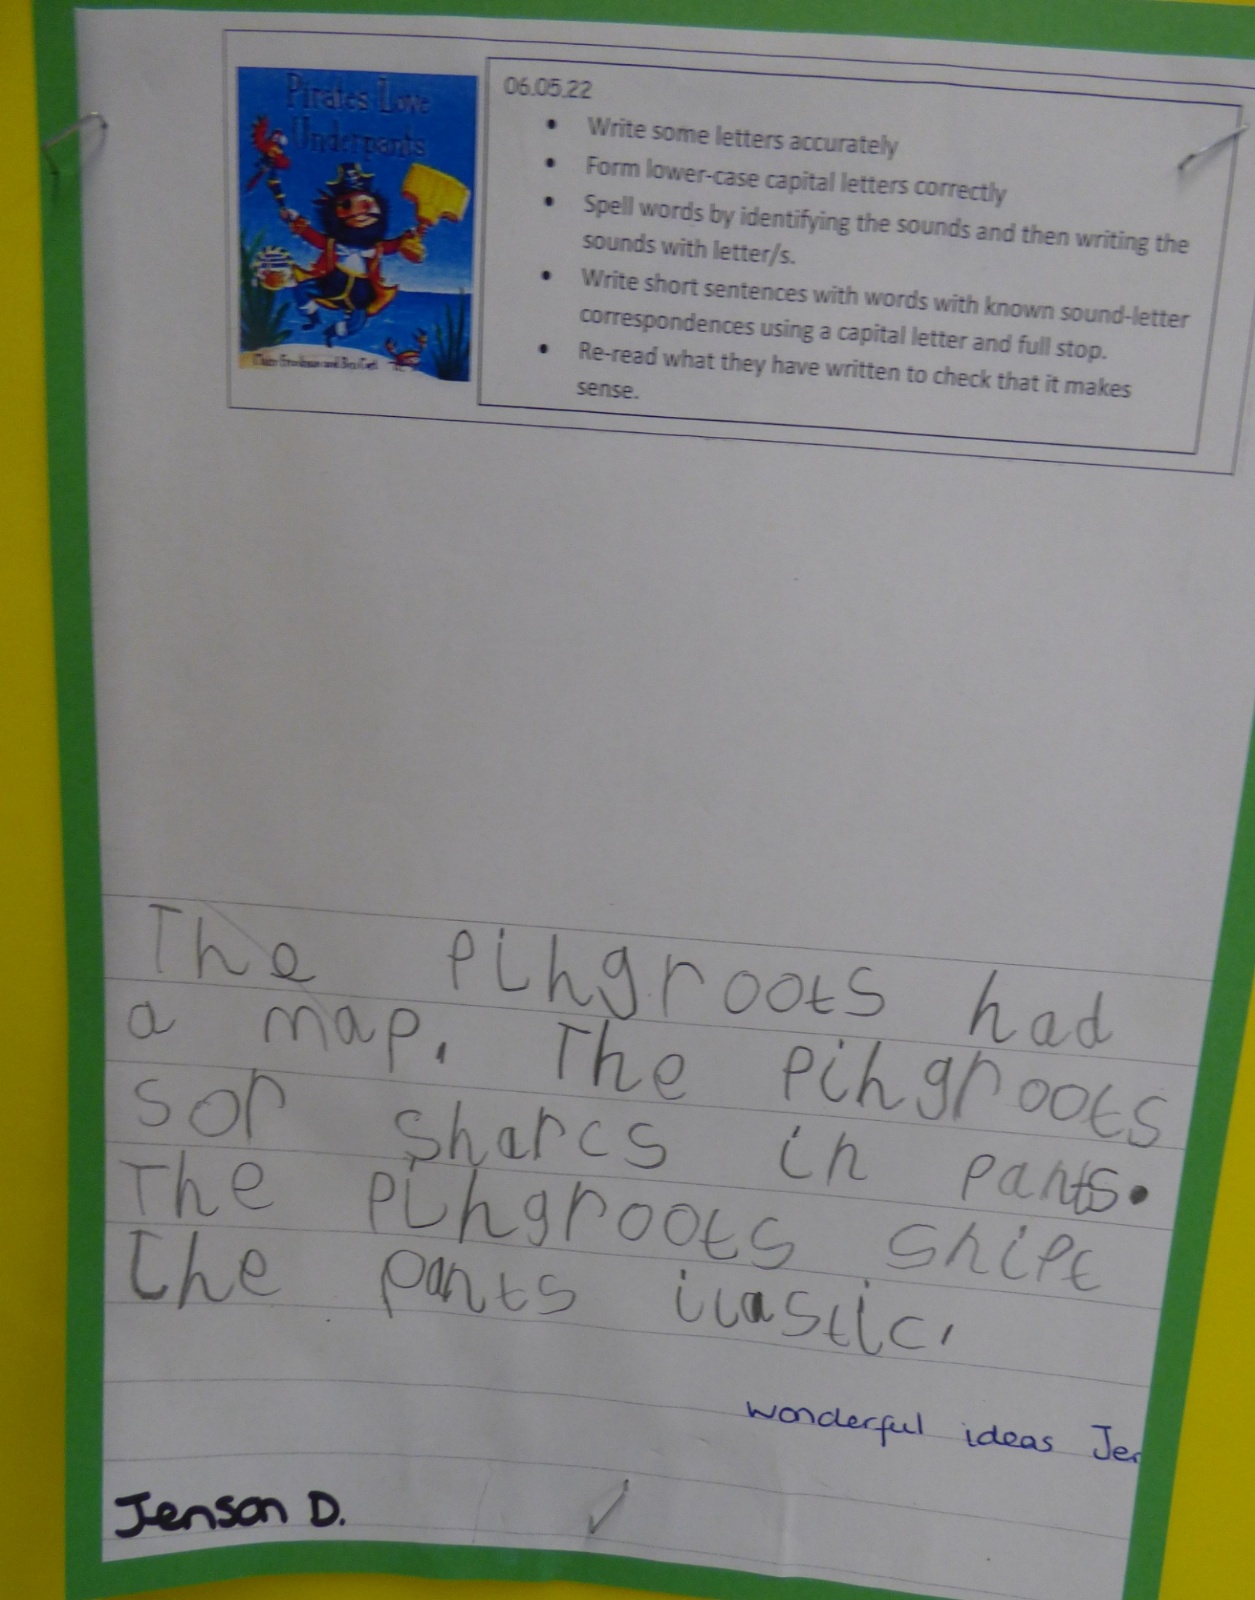 Pirates Love
Underpants
06.05.22
• Write some letters accurately
• Form lower-case capital letters correctly
• Spell words by identifying the sounds and then writing the
sounds with letter/s.
• Write short sentences with words with known sound-letter
correspondences using a capital letter and full stop.
• Re-read what they have written to check that it makes
sense.
The pihgroots had
a map. The pihgroots
sor sharcs in pants.
The pihgroots snipt
the pants ilastic.
wonderful ideas Jen
Jenson D.